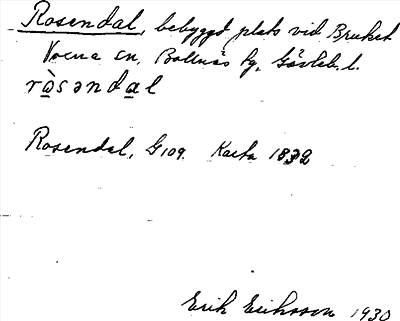 Rosendal, bebyggd plats vid Bruket
Voxna sn, Bollnäs fg, Gävleb. l.
ròsəndal
Rosendal, G109. Karta 1832
Erik Eriksson 1930